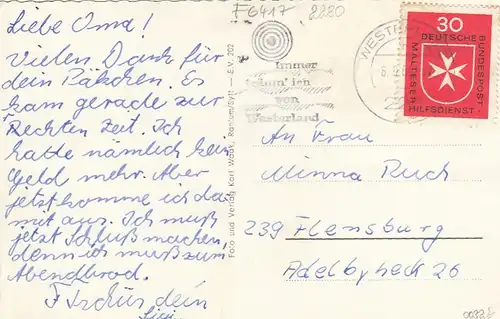 Liebe Oma!
Vielen Dank für
dein Päkchen. Es
kam gerade zur
Rechten Zeit. Ich
hatte nämlich kein
Geld mehr. Aber
jetzt komme ich da
mit aus. Ich muß
jetzt Schluß machen,
denn ich muß zum
Abendbrod.
Tschüs dein
F6417 2280
Immer
von
Westerland
WESTER
30
DEUTSCHE
BUNDESPOST
MALTESER
HILFSDIENST
Foto und Verlag Karl Rantum/Sylt — E.V. 202
An Frau
Minna Ruch
239 Flensburg
Adelbybeck 26